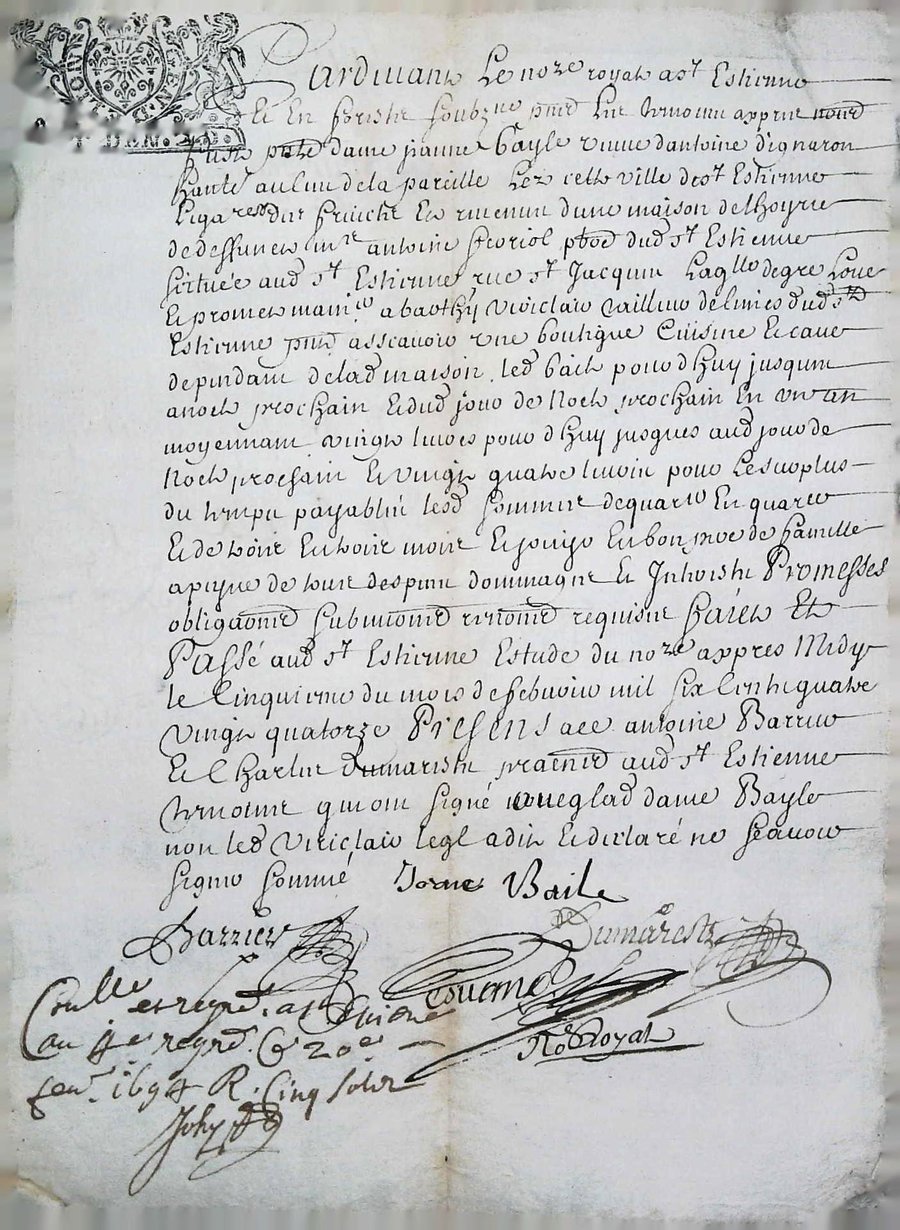 Pardevant Le no.re royal a S.t Estienne
Et En forestz soubz.né p.nt Les tesmoins appres només
dame jeanne Bayle vefve d'antoine d'ignaron
au lieu de la pareille Lez cette ville de S.t Estienne
En revenu d'une maison de l'hoyrie
de deffunct m.re antoine Horiol dud S.t Estienne
sittuée aud S.t Estienne rue S.t Jacques Laq.lle de gre Loue
Et promet main.ir a barth.y Viriclair tailleur de limes dud S.t
Estienne p.nt asscavoir une boutique Cuisine Et cave
dependant de lad maison, led bail pour d'huy jusques
a noel prochain Et dud jour de Noel prochain En un an
moyennant vingt livres pour d'huy jusques aud jour de
Noel prochain Et vingt quatre livres pour Le surplus
du temps payables lesd sommes de quartier En quartier
Et de trois En trois mois Et jouyr En bon pere de famille
a peyne de tous despens dommages Et Interestz Promesses
obliga.ons submi.ons renon.ons requises Faict Et
Passé aud S.t Estienne Estude du no.re appres Midy
le Cinquieme du mois de febvrier mil six Cents quatre
vingt quatorze Presens antoine Barrier
Et Charles Dumarestz praticiens aud S.t Estienne
tesmoins qui ont signé avec lad dame Bayle
non led Viriclair leql a dit Et declaré ne scavoir
signer sommé Jeane Baile
Barrier Dumarestz
No.re Royal
Con.lle et regré. a S.t Estienne
au regré. Ce 20e
fev.r 1694 R. Cinq solz